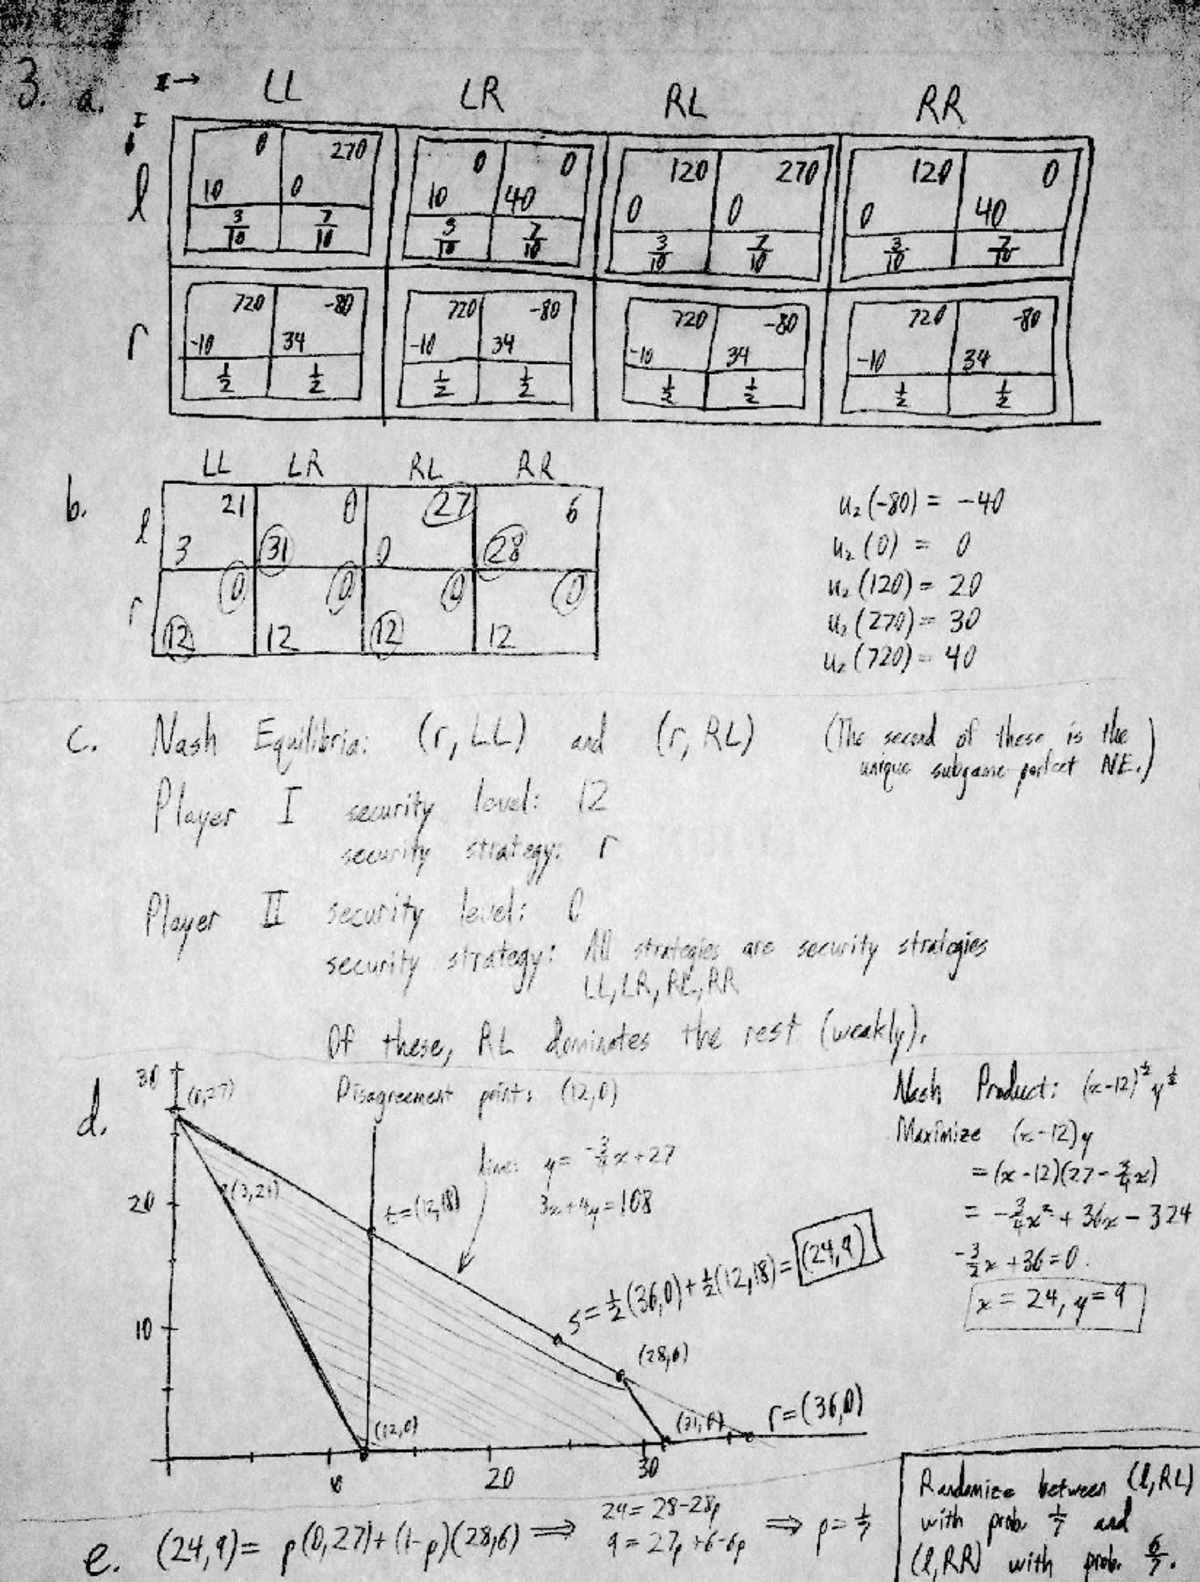 3. a. II→ LL LR RL RR
I
↓
l 0 270 0 0 120 270 120 0
10 0 10 40 0 0 0 40
3/10 7/10 3/10 7/10 3/10 7/10 3/10 7/10
r 720 -80 720 -80 720 -80 720 -80
-10 34 -10 34 -10 34 -10 34
1/2 1/2 1/2 1/2 1/2 1/2 1/2 1/2
b. LL LR RL RR
l 21 0 27 6
3 31 0 28
r 0 0 0 0
12 12 12 12
u₂(-80) = -40
u₂(0) = 0
u₂(120) = 20
u₂(270) = 30
u₂(720) = 40
c. Nash Equilibria: (r, LL) and (r, RL) (The second of these is the
unique subgame-perfect NE.)
Player I security level: 12
security strategy: r
Player II security level: 0
security strategy: All strategies are security strategies
LL, LR, RL, RR
Of these, RL dominates the rest (weakly).
d. 30 (0,27) Disagreement point: (12,0)
line: y = -3/4x+27
3x+4y=108
(3,21)
20 t=(12,18)
s=1/2(36,0)+1/2(12,18)=(24,9)
10
(28,6)
(12,0) (31,0) r=(36,0)
10 20 30
Nash Product: (x-12)^1/2 y^1/2
Maximize (x-12)y
=(x-12)(27-3/4x)
= -3/4x²+36x-324
-3/2x+36=0.
x=24, y=9
e. (24,9)= p(0,27)+(1-p)(28,6) ⟹ 24=28-28p
9=27p+6-6p ⟹ p=1/7
Randomize between (l,RL)
with prob. 1/7 and
(l,RR) with prob. 6/7.